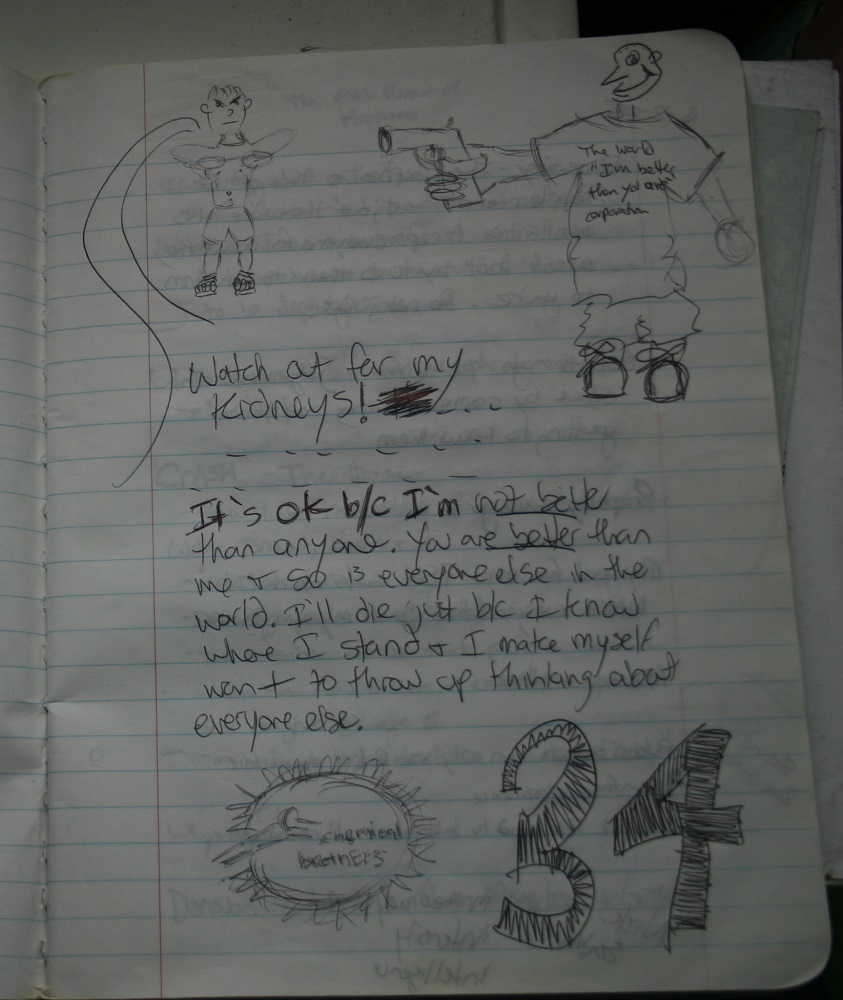 The world
"I'm better
than you are"
corporation
Watch out for my
Kidneys!
It's ok b/c I'm not better
than anyone. You are better than
me + so is everyone else in the
world. I'll die just b/c I know
where I stand + I make myself
want to throw up thinking about
everyone else.
chemical
brothers
34